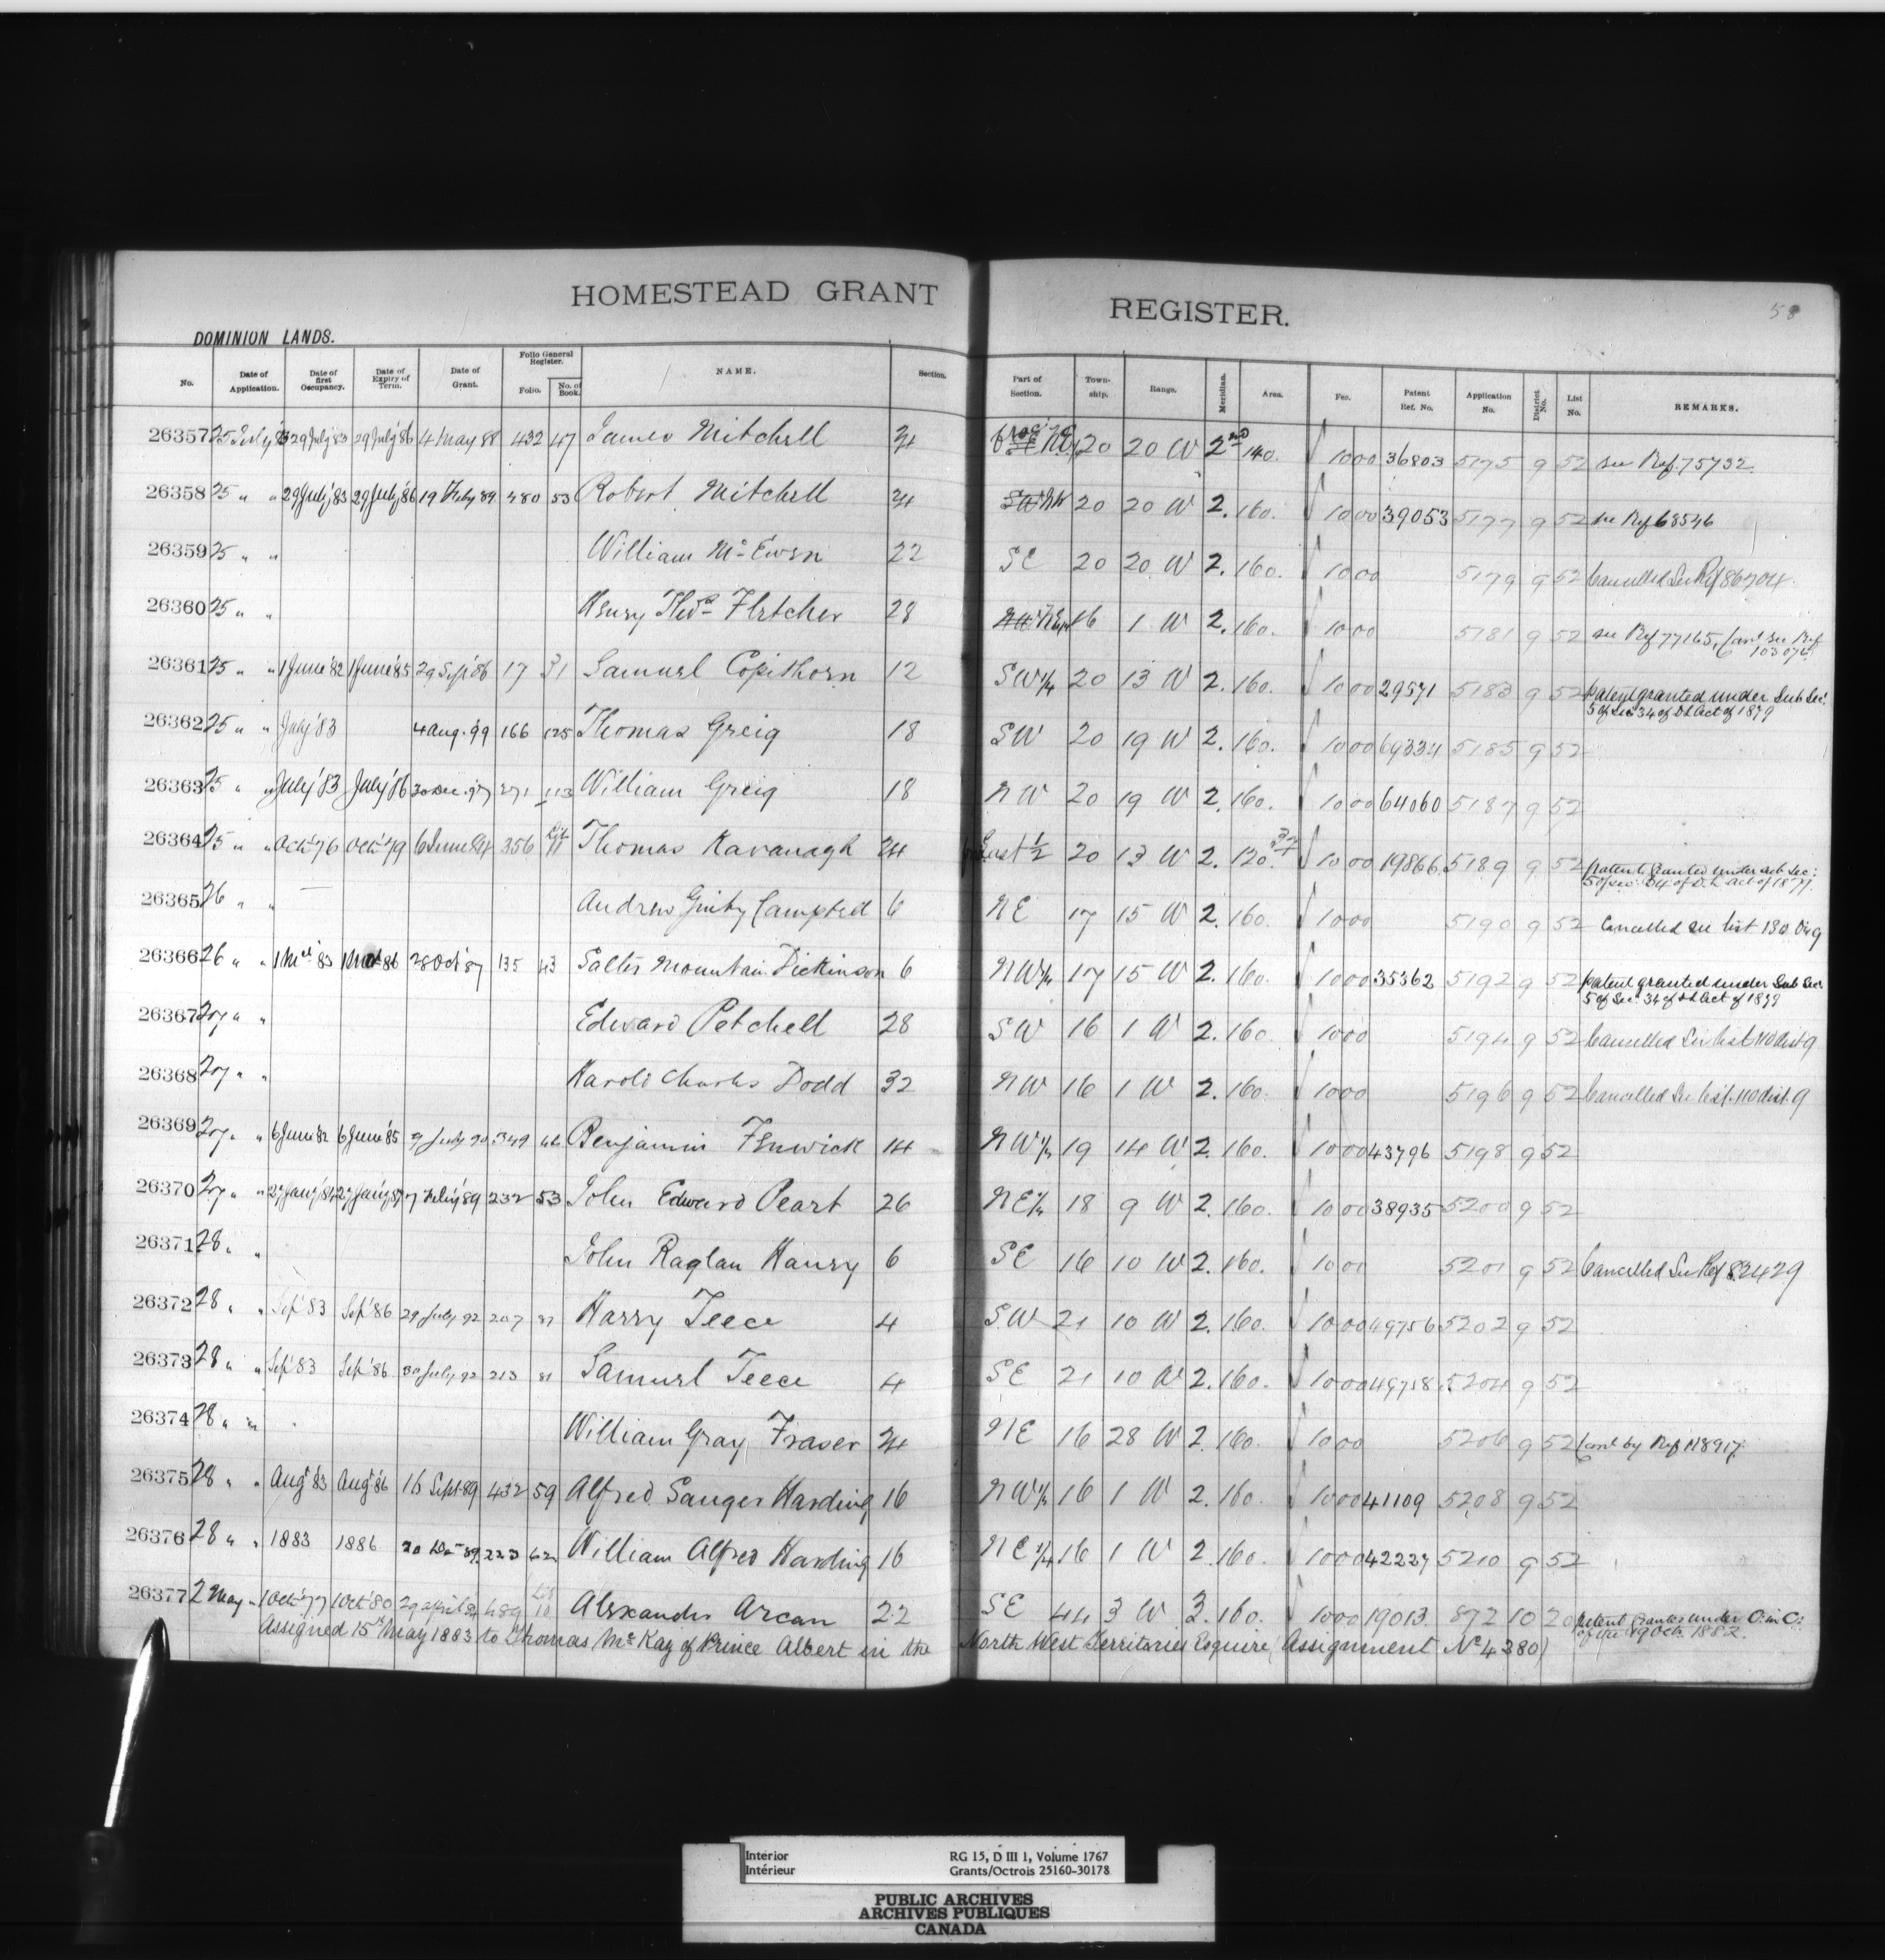 HOMESTEAD GRANT REGISTER.
58
DOMINION LANDS.
No. Date of Application. Date of first Occupancy. Date of Expiry of Term. Date of Grant. Folio General Register. Folio. No. of Book. NAME. Section. Part of Section. Town-ship. Range. Meridian. Area. Fee. Patent Ref. No. Application No. District No. List No. REMARKS.
26357 25 July '83 29 July '83 29 July '86 4 May 88 432 47 James Mitchell 34 20 20 W 2nd 140. 1000 36803 5175 9 52 see Ref. 75732
26358 25 " " 29 July '83 29 July '86 19 Feby 89 480 53 Robert Mitchell 34 SW NW 20 20 W 2. 160. 1000 39053 5177 9 52 see Ref 68546
26359 25 " " William Mc Ewen 22 SE 20 20 W 2. 160. 1000 5179 9 52 Cancelled See Ref 86704
26360 25 " " Henry Thos Fletcher 28 16 1 W 2. 160. 1000 5181 9 52 see Ref 77165, Canl see Ref 103074
26361 25 " " 1 June '82 1 June '85 29 Sept '86 17 31 Samuel Copithorn 12 SW 1/4 20 13 W 2. 160. 1000 29571 5183 9 52 patent granted under Sub Sec:
5 of Sec 34 of D L Act of 1879
26362 25 " " July '83 4 Aug. '99 166 125 Thomas Greig 18 SW 20 19 W 2. 160. 1000 69334 5185 9 52
26363 25 " " July '83 July '86 30 Dec. 97 271 113 William Greig 18 NW 20 19 W 2. 160. 1000 64060 5187 9 52
26364 25 " " Oct '76 Oct '79 6 June 84 356 Lit 11 Thomas Kavanagh 34 East 1/2 20 13 W 2. 120. 1000 19866 5189 9 52 patent Granted under sub sec:
5 of sec: 34 of D. L. act of 1879.
26365 26 " " Andrew Ginty Campted 6 NE 17 15 W 2. 160. 1000 5190 9 52 Cancelled see list 130 Dis 9
26366 26 " " 1 Mch '83 1 Mch 86 28 Oct '87 135 43 Salter Mountain Dickinson 6 NW 1/4 17 15 W 2. 160. 1000 35362 5192 9 52 patent granted under Sub Sec
5 of Sec 34 of D L Act of 1879
26367 27 " " Edward Petchell 28 SW 16 1 W 2. 160. 1000 5194 9 52 Cancelled See list 110 dist 9
26368 27 " " Harold Charles Dodd 32 NW 16 1 W 2. 160. 1000 5196 9 52 Cancelled See list 110 dist. 9
26369 27 " " 6 June '82 6 June '85 9 July 90 349 66 Benjamin Fenwick 14 NW 1/4 19 14 W 2. 160. 1000 43796 5198 9 52
26370 27 " " 27 Jany '84 27 Jany '87 7 Feby '89 232 53 John Edward Peart 26 NE 1/4 18 9 W 2. 160. 1000 38935 5200 9 52
26371 28 " " John Raglan Haury 6 SE 16 10 W 2. 160. 1000 5201 9 52 Cancelled See Ref 82429
26372 28 " " Sep '83 Sep '86 29 July 92 207 81 Harry Teece 4 S.W 21 10 W 2. 160. 1000 49756 5202 9 52
26373 28 " " Sep '83 Sep '86 30 July 92 213 81 Samuel Teece 4 SE 21 10 W 2. 160. 1000 49758 5204 9 52
26374 28 " " William Gray Fraser 34 NE 16 28 W 2. 160. 1000 5206 9 52 Canl by Ref 118917
26375 28 " " Augt '83 Augt '86 16 Sept 89 432 59 Alfred Sanger Harding 16 NW 1/4 16 1 W 2. 160. 1000 41109 5208 9 52
26376 28 " " 1883 1886 20 Dec 89 223 62 William Alfred Harding 16 NE 1/4 16 1 W 2. 160. 1000 42237 5210 9 52
26377 2 May " 1 Oct '77 1 Oct '80 29 april 84 489 Lit 10 Alexander Arcan 22 SE 44 3 W 3. 160. 1000 19013 872 10 20 patent Granted under O. in C:
of the 19 Octr. 1882.
Assigned 15th May 1883 to Thomas McKay of Prince Albert in the North West Territories Esquire (Assignment No 4380)
Interior RG 15, D III 1, Volume 1767
Intérieur Grants/Octrois 25160-30178
PUBLIC ARCHIVES
ARCHIVES PUBLIQUES
CANADA